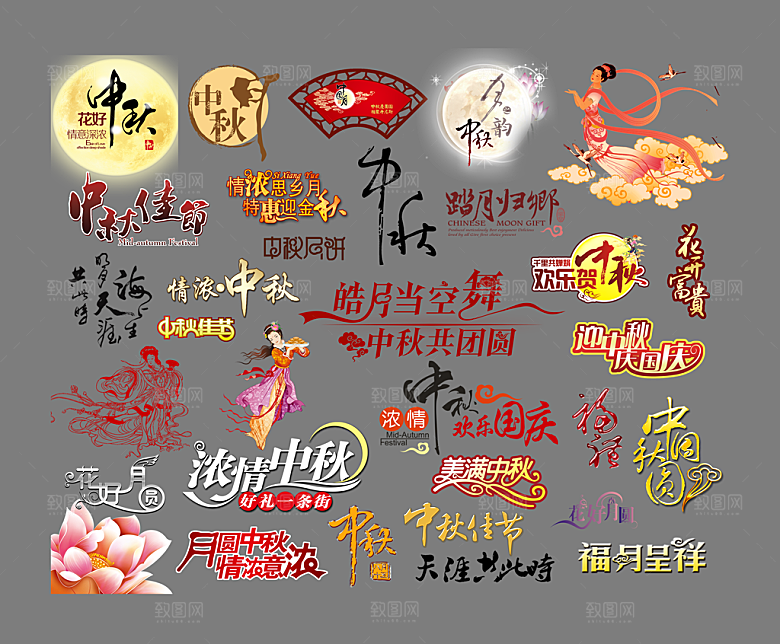 中秋
花好
情意深浓
中秋
月
中秋月
之韵
中秋
中秋佳節
Mid-autumn Festival
Si Xiang Yue
情浓思乡月
特惠迎金秋
中秋月饼
中秋
踏月归鄉
CHINESE MOON GIFT
千里共婵娟
欢乐贺中秋
花开富貴
海上生
明月
天涯
共此時
情浓·中秋
中秋佳节
皓月当空舞
中秋共团圆
迎中秋
庆国庆
中秋
浓情
Mid-Autumn
Festival
欢乐国庆
福禄
中秋月圆
花好月圆
浓情中秋
好礼一条街
美满中秋
花好月圆
月圆中秋
情浓意浓
中秋
中秋佳节
天涯共此時
福月呈祥
致图网